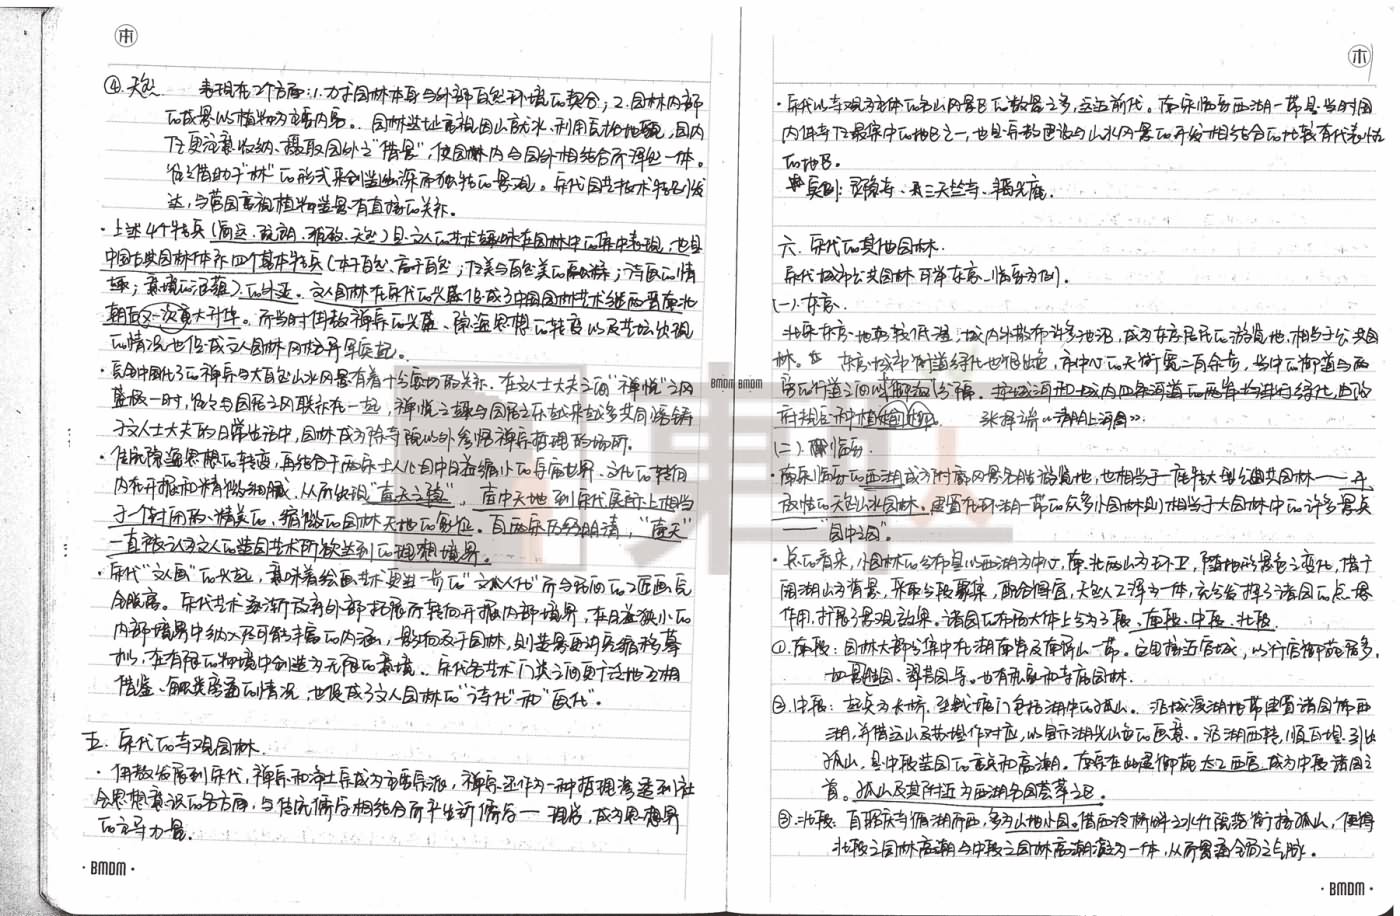 本
④天然 表现在2个方面:1.力求园林本身与外部自然环境的契合;2.园林内部
的成景以植物为主要内容。园林选址重视因山就水、利用原始地貌,园内
乃更注意收纳、摄取园外之“借景”,使园林内与园外相结合而浑然一体。
往往借助于“林”的形式来创造幽深而独特的景观。宋代园艺技术特别发
达,与营园重视植物造景有直接的关系。
·上述4个特点(简远、疏朗、雅致、天然)是文人的艺术趣味在园林中的集中表现,也是
中国古典园林体系四个基本特点(本于自然、高于自然;建筑美与自然美的融糅;诗画的情
趣;意境的涵蕴)的外延。文人园林在宋代的兴盛促成了中国园林艺术继两晋南北
朝后又一次重大升华。而当时佛教禅宗的兴盛、隐逸思想的转变以及艺坛出现
的情况也促成文人园林风格异军突起。
·完全中国化了的禅宗与大自然山水风景有着十分密切的关系。在文士大夫之间“禅悦”之风
盛极一时,往往与园居之风联系在一起,禅悦之趣与园居之乐越来越多共同溶铸
于文人士大夫的日常生活中,园林成为除寺院以外参悟禅宗哲理的场所。
·传统隐逸思想的转变,再结合于两宋士人心目中日益缩小的容膺世界、文化的转向
内在开掘和精微细腻,从而出现“壶天之隐”。壶中天地到宋代实际上相当
于一个封闭的、精美的、缩微的园林天地的象征。自两宋历经明清,“壶天”
一直被认为文人的造园艺术所欲达到的理想境界。
·宋代“文人画”的兴起,意味着绘画艺术更进一步的“文人化”而与民间的工匠画完
全脱离。宋代艺术逐渐放弃外部拓展而转向开掘内部境界,在日益狭小的
内部境界中纳入尽可能丰富的内涵,影响及于园林,则造景再讲究缩移摹
拟,在有限的物境中创造出无限的意境。宋代各艺术门类之间更广泛地互相
借鉴、触类旁通的情况,也促成了文人园林的“诗化”和“画化”。
五. 宋代的寺观园林.
·佛教发展到宋代,禅宗和净土宗成为主要宗派,禅宗还作为一种哲理渗透到社
会思想意识的各方面,与传统儒学相结合而产生新儒学——理学,成为思想界
的主导力量。
·BMDM·
BMDM BMDM
本
·宋代以寺观为主体的名山风景区的数量之多,远迈前代。南宋临安西湖一带是当时国
内佛寺建筑最集中的地区之一,也是宗教建设与山水风景的开发相结合的比较有代表性
的地区。
典型例:灵隐寺、三天竺寺、韬光庵.
六. 宋代的其他园林.
宋代城市公共园林可举东京、临安为例。
(一).东京.
北宋东京地势较低湿,城内外散布许多池沼,成为东京居民的游览地,相当于公共园
林。东京城市街道绿化也很出色,市中心的天街宽二百余步,当中的御道与两
旁的行道之间以御沟分隔。护城河和城内四条河道的两岸均进行绿化,由政
府规定种植榆柳。 张择端《清明上河图》.
(二).临安.
·南宋临安的西湖成为附廓风景名胜游览地,也相当于一座特大型公共园林——开
放性的天然山水园林。建置在环湖一带的众多小园林则相当于大园林中的许多景点
——“园中之园”。
·总的看来,小园林的分布是以西湖为中心,南、北两山为环卫,随地形景色之变化,借广
阔湖山为背景,采取分段聚集,配合得宜,天然人工浑为一体,充分发挥了诸园的点景
作用,扩展了景观效果。诸园的布局大体上分为3段:南段、中段、北段.
①.南段:园林大部分集中在湖南岸及南屏山一带。这里接近宫城,以行宫御苑居多,
如:聚胜园、翠芳园等。也有私家和寺庙园林.
②.中段:起点为长桥,至钱塘门包括湖中的孤山。沿城滨湖地带建置诸园饰西
湖,并借远山及苏堤作对应,以显示湖光山色的画意。沿湖西转,顺白堤引出
孤山,是中段造园的重点和高潮。南宋在此建御苑西太乙宫,成为中段诸园之
首。孤山及其附近为西湖名园荟萃之区.
③.北段:自昭庆寺循湖而西,多为山地小园。借西泠桥畔之水竹院落衔接孤山,使得
北段之园林高潮与中段之园林高潮凝为一体,从而贯通全局之气脉。
·BMDM·